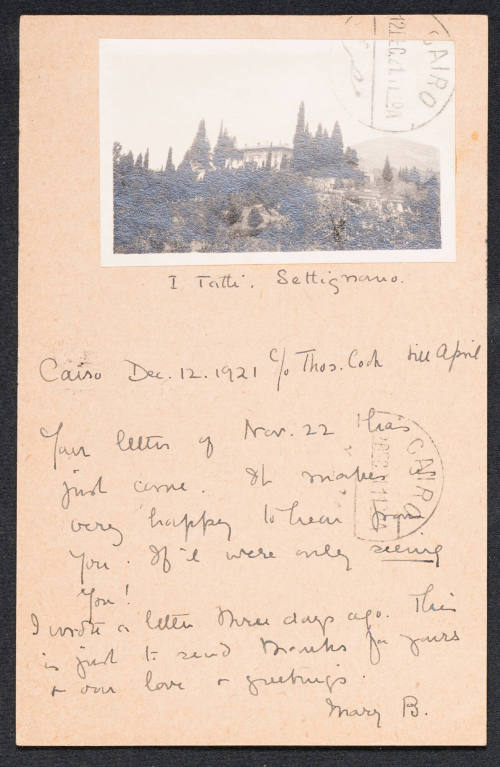 CAIRO
I Tatti. Settignano.
Cairo Dec. 12. 1921 c/o Thos. Cook till April
Your letter of Nov. 22 has
just come. It makes
very happy to hear from
you. If it were only seeing
you!
I wrote a letter three days ago. This
is just to send thanks for yours
& our love & greetings.
Mary B.
CAIRO